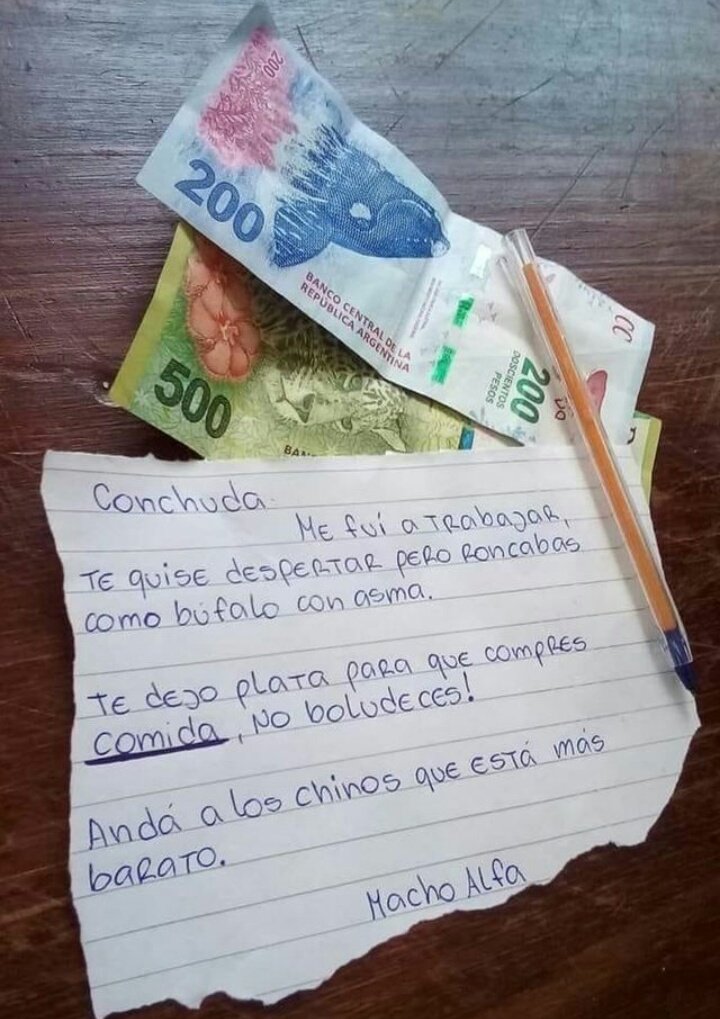 200
200
BANCO CENTRAL DE LA
REPÚBLICA ARGENTINA
200
DOSCIENTOS
PESOS
CC
500
BAN
Conchuda.
ME fuí a TRabajar,
TE quise despertar pero Roncabas
como búfalo con asma.
te dejo plata para que compres
comida, No boludeces!
Andá a los chinos que está más
barato.
Macho Alfa